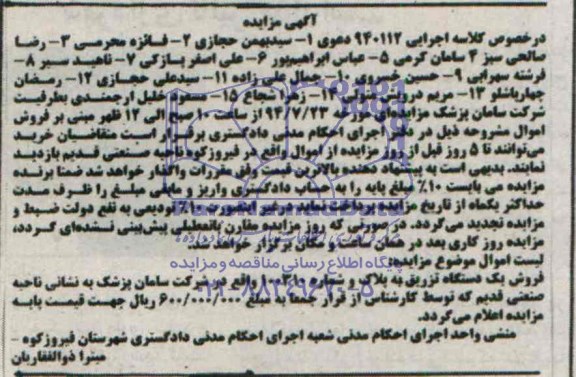 آگهی مزایده
درخصوص کلاسه اجرایی ۹۴۰۱۱۲ دعوی ۱- سیدبهمن حجازی ۲- فائزه محرمی ۳- رضا
صالحی سبز ۴ سامان کرمی ۵- عباس ابراهیم‌پور ۶- علی اصفر پازکی ۷- ناهید سیر ۸-
فرشته سهرابی ۹- حسین خسروی ۱۰- جمال علی زاده ۱۱- سیدعلی حجازی ۱۲- رمضان
چهارباشلو ۱۳- مریم ۱۴- زهرا شجاع ۱۵- مسعود خلیل ارجمندی بطرفیت
شرکت سامان پزشک مزایده‌ای مورخه ۹۴/۷/۲۳ از ساعت ۱۰ صبح الی ۱۲ ظهر مبنی بر فروش
اموال مشروحه ذیل در دفتر اجرای احکام مدنی دادگستری برقرار است متقاضیان خرید
می‌توانند تا ۵ روز قبل از روز مزایده از اموال واقع در فیروزکوه ناحیه صنعتی قدیم بازدید
نمایند. بدیهی است به پیشنهاد دهنده بالاترین قیمت وفق مقررات واگذار خواهد شد ضمنا برنده
مزایده می بایست ۱۰٪ مبلغ پایه را به حساب دادگستری واریز و مابقی مبلغ را ظرف مدت
حداکثر یکماه از تاریخ مزایده پرداخت نماید در غیر اینصورت ۱۰٪ تودیعی به نفع دولت ضبط و
مزایده تجدید می‌گردد. در صورتی که روز مزایده مقارن باتعطیلی پیش‌بینی نشده‌ای گردد،
مزایده روز کاری بعد در همان ساعت و مکان برگزار خواهد شد
لیست اموال موضوع مزایده:
پایگاه اطلاع رسانی مناقصه و مزایده
فروش یک دستگاه تزریق به پلاک و شماره واقع در شرکت سامان پزشک به نشانی ناحیه
صنعتی قدیم که توسط کارشناس از قرار جمعا به مبلغ ۶۰۰/۰۰۰/۰۰۰ ریال جهت قیمت پایه
مزایده اعلام می‌گردد.
منشی واحد اجرای احکام مدنی شعبه اجرای احکام مدنی دادگستری شهرستان فیروزکوه -
میترا ذوالفقاریان